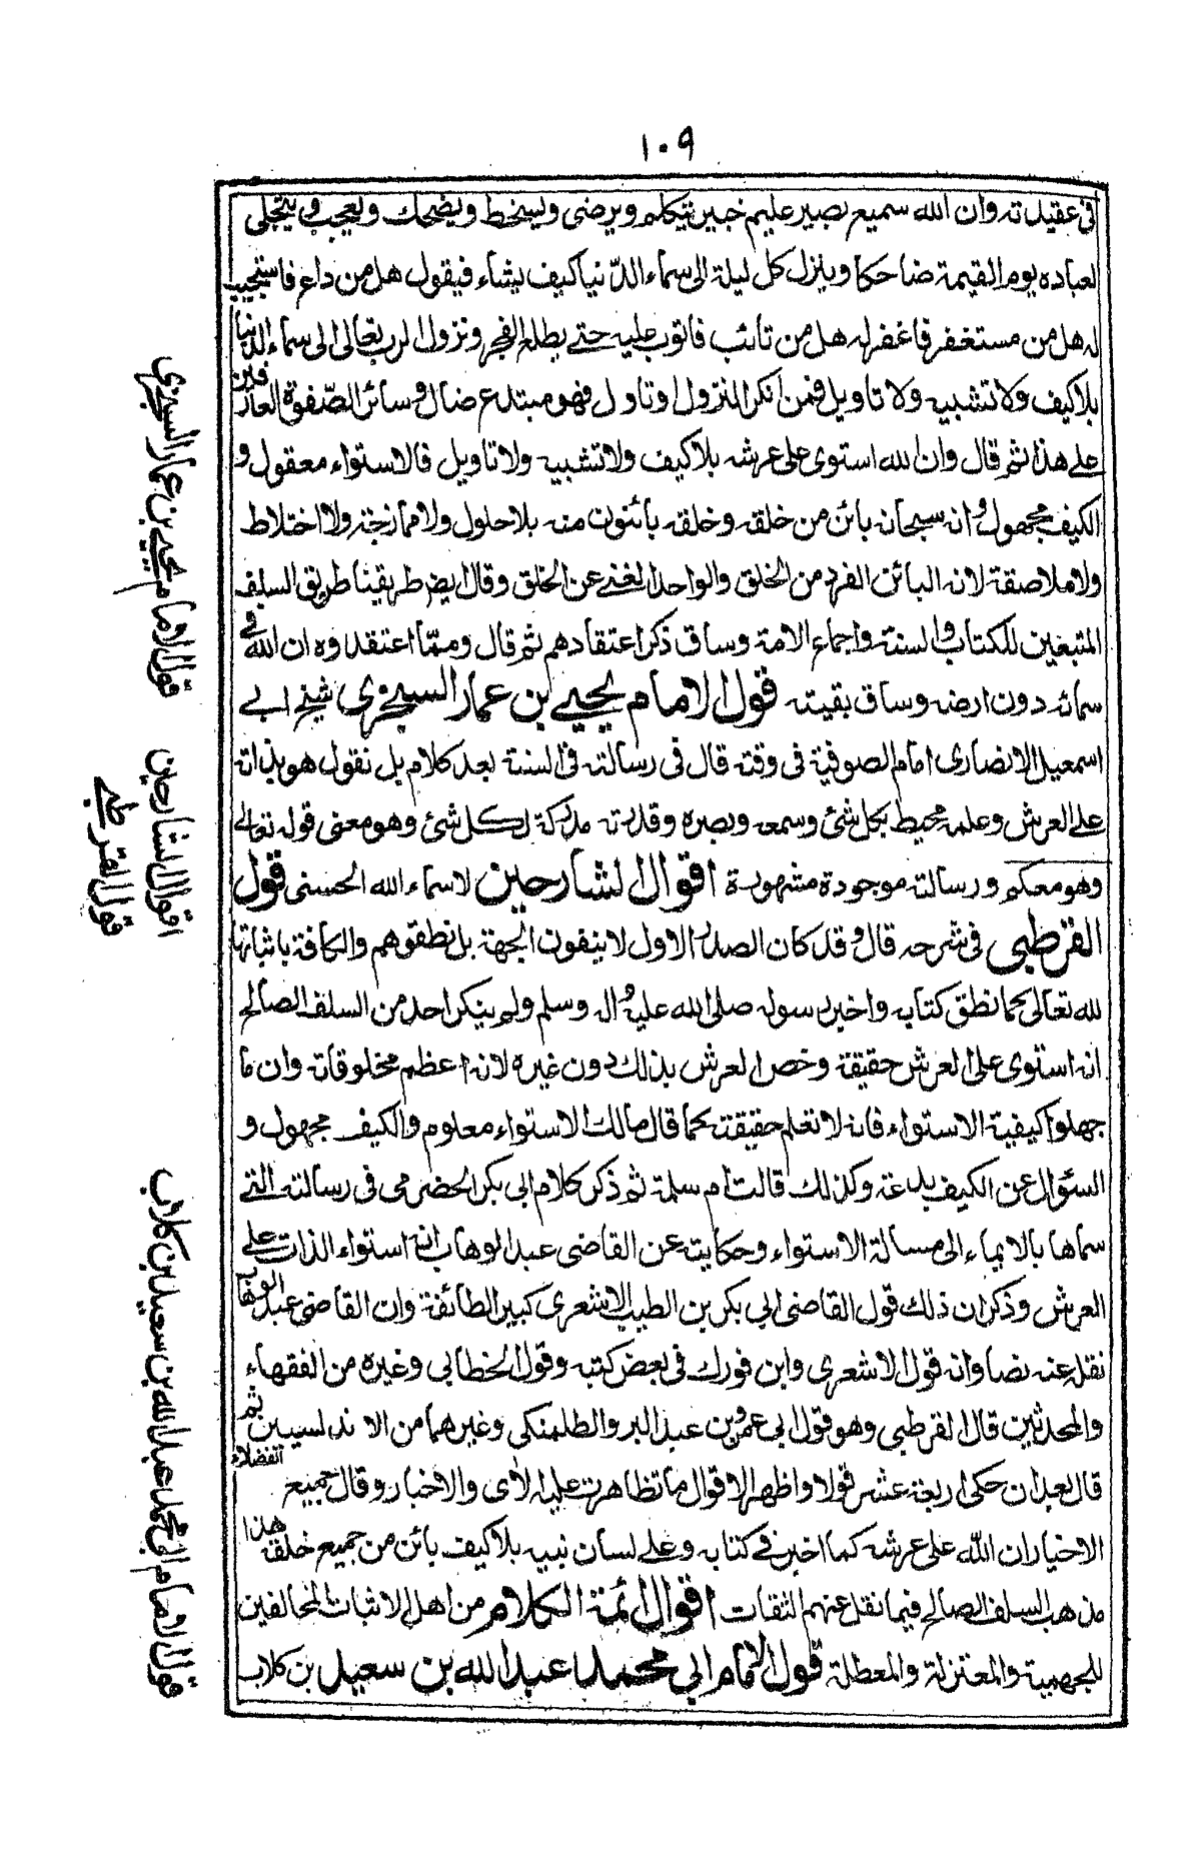 ١٠٩
فى عقيدته وان الله سميع بصير عليم خبير يتكلم ويرضى ويسخط ويضحك ويعجب و يتجلى
لعباده يوم القيمة ضاحكا وينزل كل ليلة الى سماء الدنيا كيف يشاء فيقول هل من داع فاستجيب
له هل من مستغفر فاغفر له هل من تائب فاتوب عليه حتى يطلع الفجر ونزول الرب تعالى الى سماء الدنيا
بلاكيف ولا تشبيه ولا تاويل فمن انكر النزول او تاول فهو مبتدع ضال وسائر الصّفوة العارفين
على هذا ثم قال وان الله استوى على عرشه بلا كيف ولا تشبيه ولا تاويل فالاستواء معقول و
الكيف مجهول وانه سبحانه بائن من خلقه وخلقه بائنون منه بلا حلول ولا ممازجة ولا اختلاط
ولا ملاصقة لانه البائن الفرد من الخلق والواحد الغنى عن الخلق وقال ايضا طريقنا طريق السلف
المتبعين للكتاب والسنة واجماع الامة وساق ذكر اعتقادهم ثم قال وممّا اعتقدوه ان الله فى
سمائه دون ارضه وساق بقيته قول الامام يحيى بن عمار السجزى شيخ ابى
اسمعيل الانصارى امام الصوفية فى وقته قال فى رسالته فى السنة بعد كلام بل نقول هو بذاته
على العرش وعلمه محيط بكل شئ وسمعه وبصره وقدرته مدركة لكل شئ وهو معنى قوله تعالى
وهو معكم ورسالته موجودة مشهورة اقوال الشارحين لاسماء الله الحسنى قول
القرطبى فى شرحه قال وقد كان الصدر الاول لا ينفون الجهة بل نطقوهم والكافة باثباتها
لله تعالى كما نطق كتابه واخبر رسوله صلى الله عليه واله وسلم ولم ينكر احد من السلف الصالح
انه استوى على العرش حقيقة وخص العرش بذلك دون غيره لانه اعظم مخلوقاته وان ما
جهلوا كيفية الاستواء فانه لا تعلم حقيقته كما قال مالك الاستواء معلوم والكيف مجهول و
السؤال عن الكيف بدعة وكذلك قالت ام سلمة ثم ذكر كلام ابى بكر الحضرمى فى رسالته التى
سماها بالايماء الى مسالة الاستواء وحكايته عن القاضى عبد الوهاب انه استواء الذات على
العرش وذكر ان ذلك قول القاضى ابى بكر بن الطيب الاشعرى كبير الطائفة وان القاضى عبد الوهاب
نقله عنه نصا وانه قول الاشعرى وابن فورك فى بعض كتبه وقول الخطابى وغيره من الفقهاء
والمحدثين قال القرطبى وهو قول ابى عمر وبن عبد البر والطلمنكى وغيرهما من الاندلسيين ثم
قال بعد ان حكى اربعة عشر قولا واظهر الاقوال ما تظاهرت عليه الآى والاخبار وقال جميع الفضلاء
الاخيار ان اللّه على عرشه كما اخبر فى كتابه وعلى لسان نبيه بلا كيف بائن من جميع خلقه هذا
مذهب السلف الصالح فيما نقل عنهم الثقات اقوال ائمة الكلام من اهل الاثبات المخالفين
للجهمية والمعتزلة والمعطلة قول الامام ابى محمد عبد الله بن سعيد بن كلاب
قول الامام يحيى بن عمار السجزى
اقوال الشارحين
قول القرطبى
قول الامام ابى محمد عبد الله بن سعيد بن كلاب